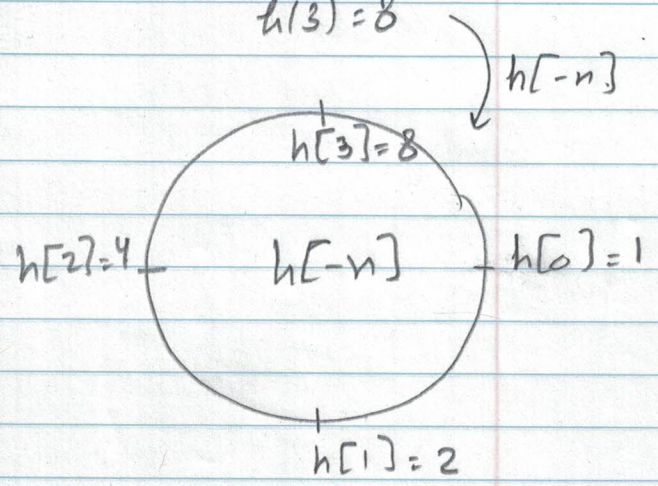 h(3) = 8
h[-n]
h[3]=8
h[2]=4
h[-n]
h[0]=1
h[1]=2